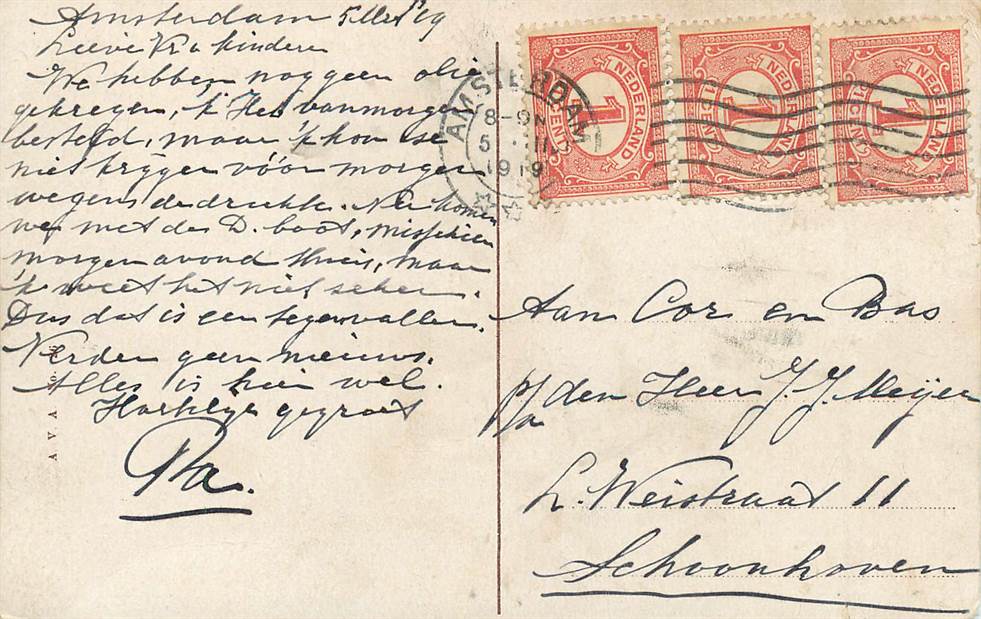 Amsterdam 5 Mrt '19
Lieve Vr. & kinderen
We hebben nog geen olie
gekregen, 'k Heb vanmorgen
besteld, maar 'k kon ze
niet krijgen vóór morgen
wegens de drukte. Nu komen
we met de D. boot, misschien
morgen avond thuis, maar
'k weet het niet zeker.
Dus dat is een tegenvaller.
Verder geen nieuws.
Alles is hier wel.
Hartelijk gegroet
Pa.
AMSTERDAM
8-9N
5 . III
1919
NEDERLAND
1
NEDERLAND
1
NEDERLAND
1
Aan Cor en Bas
p/a den Heer J. J. Meijer
L. Weistraat 11
Schoonhoven
A V A